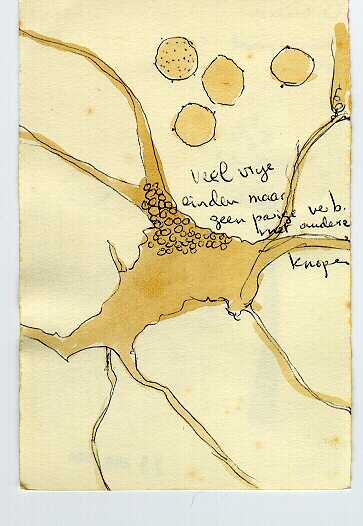 veel vrije
einden maar
geen verb.
met andere
knopen